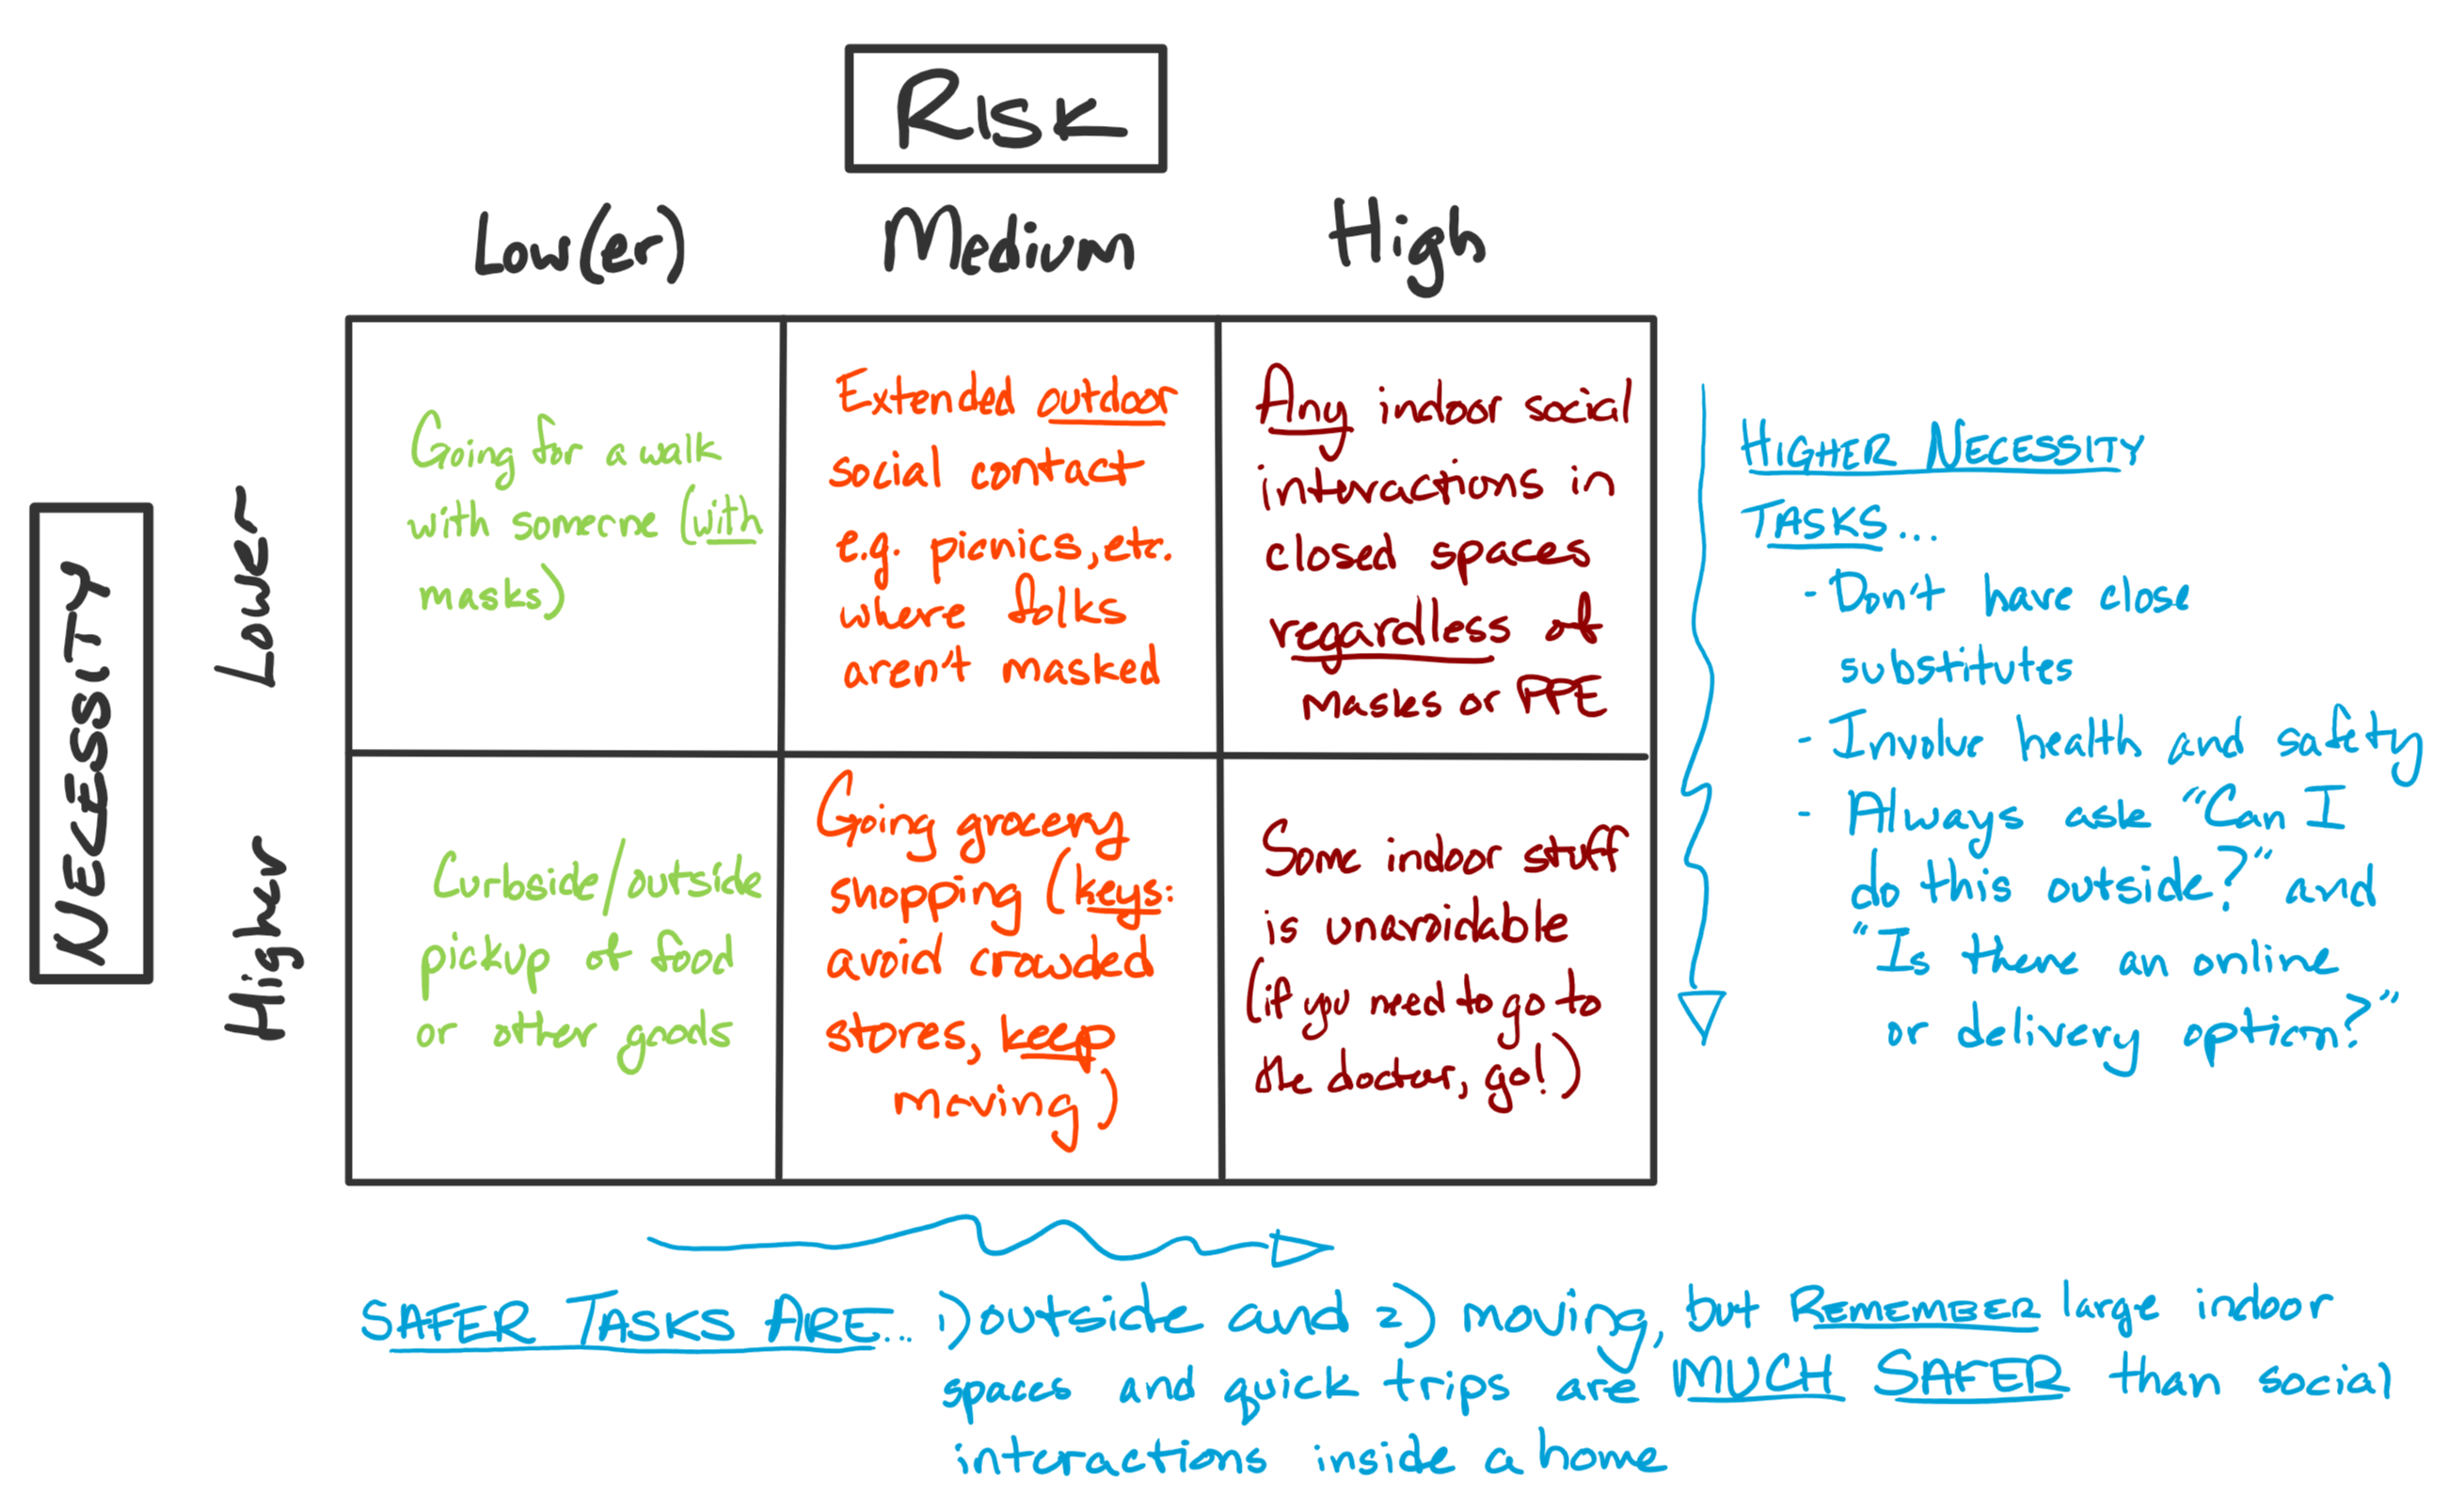 RISK
Low(er)
Medium
High
NECESSITY
Lower
Going for a walk
with someone (with
masks)
Extended outdoor
social contact
e.g. picnics, etc.
where folks
aren't masked
Any indoor social
interactions in
closed spaces
regardless of
masks or PPE
Higher
Curbside/outside
pickup of food
or other goods
Going grocery
shopping (keys:
avoid crowded
stores, keep
moving)
Some indoor stuff
is unavoidable
(if you need to go to
the doctor, go!)
HIGHER NECESSITY
TASKS...
- Don't have close
substitutes
- Involve health and safety
- Always ask "Can I
do this outside?" and
"Is there an online
or delivery option?"
SAFER TASKS ARE... 1) outside and 2) moving, but REMEMBER large indoor
spaces and quick trips are MUCH SAFER than social
interactions inside a home